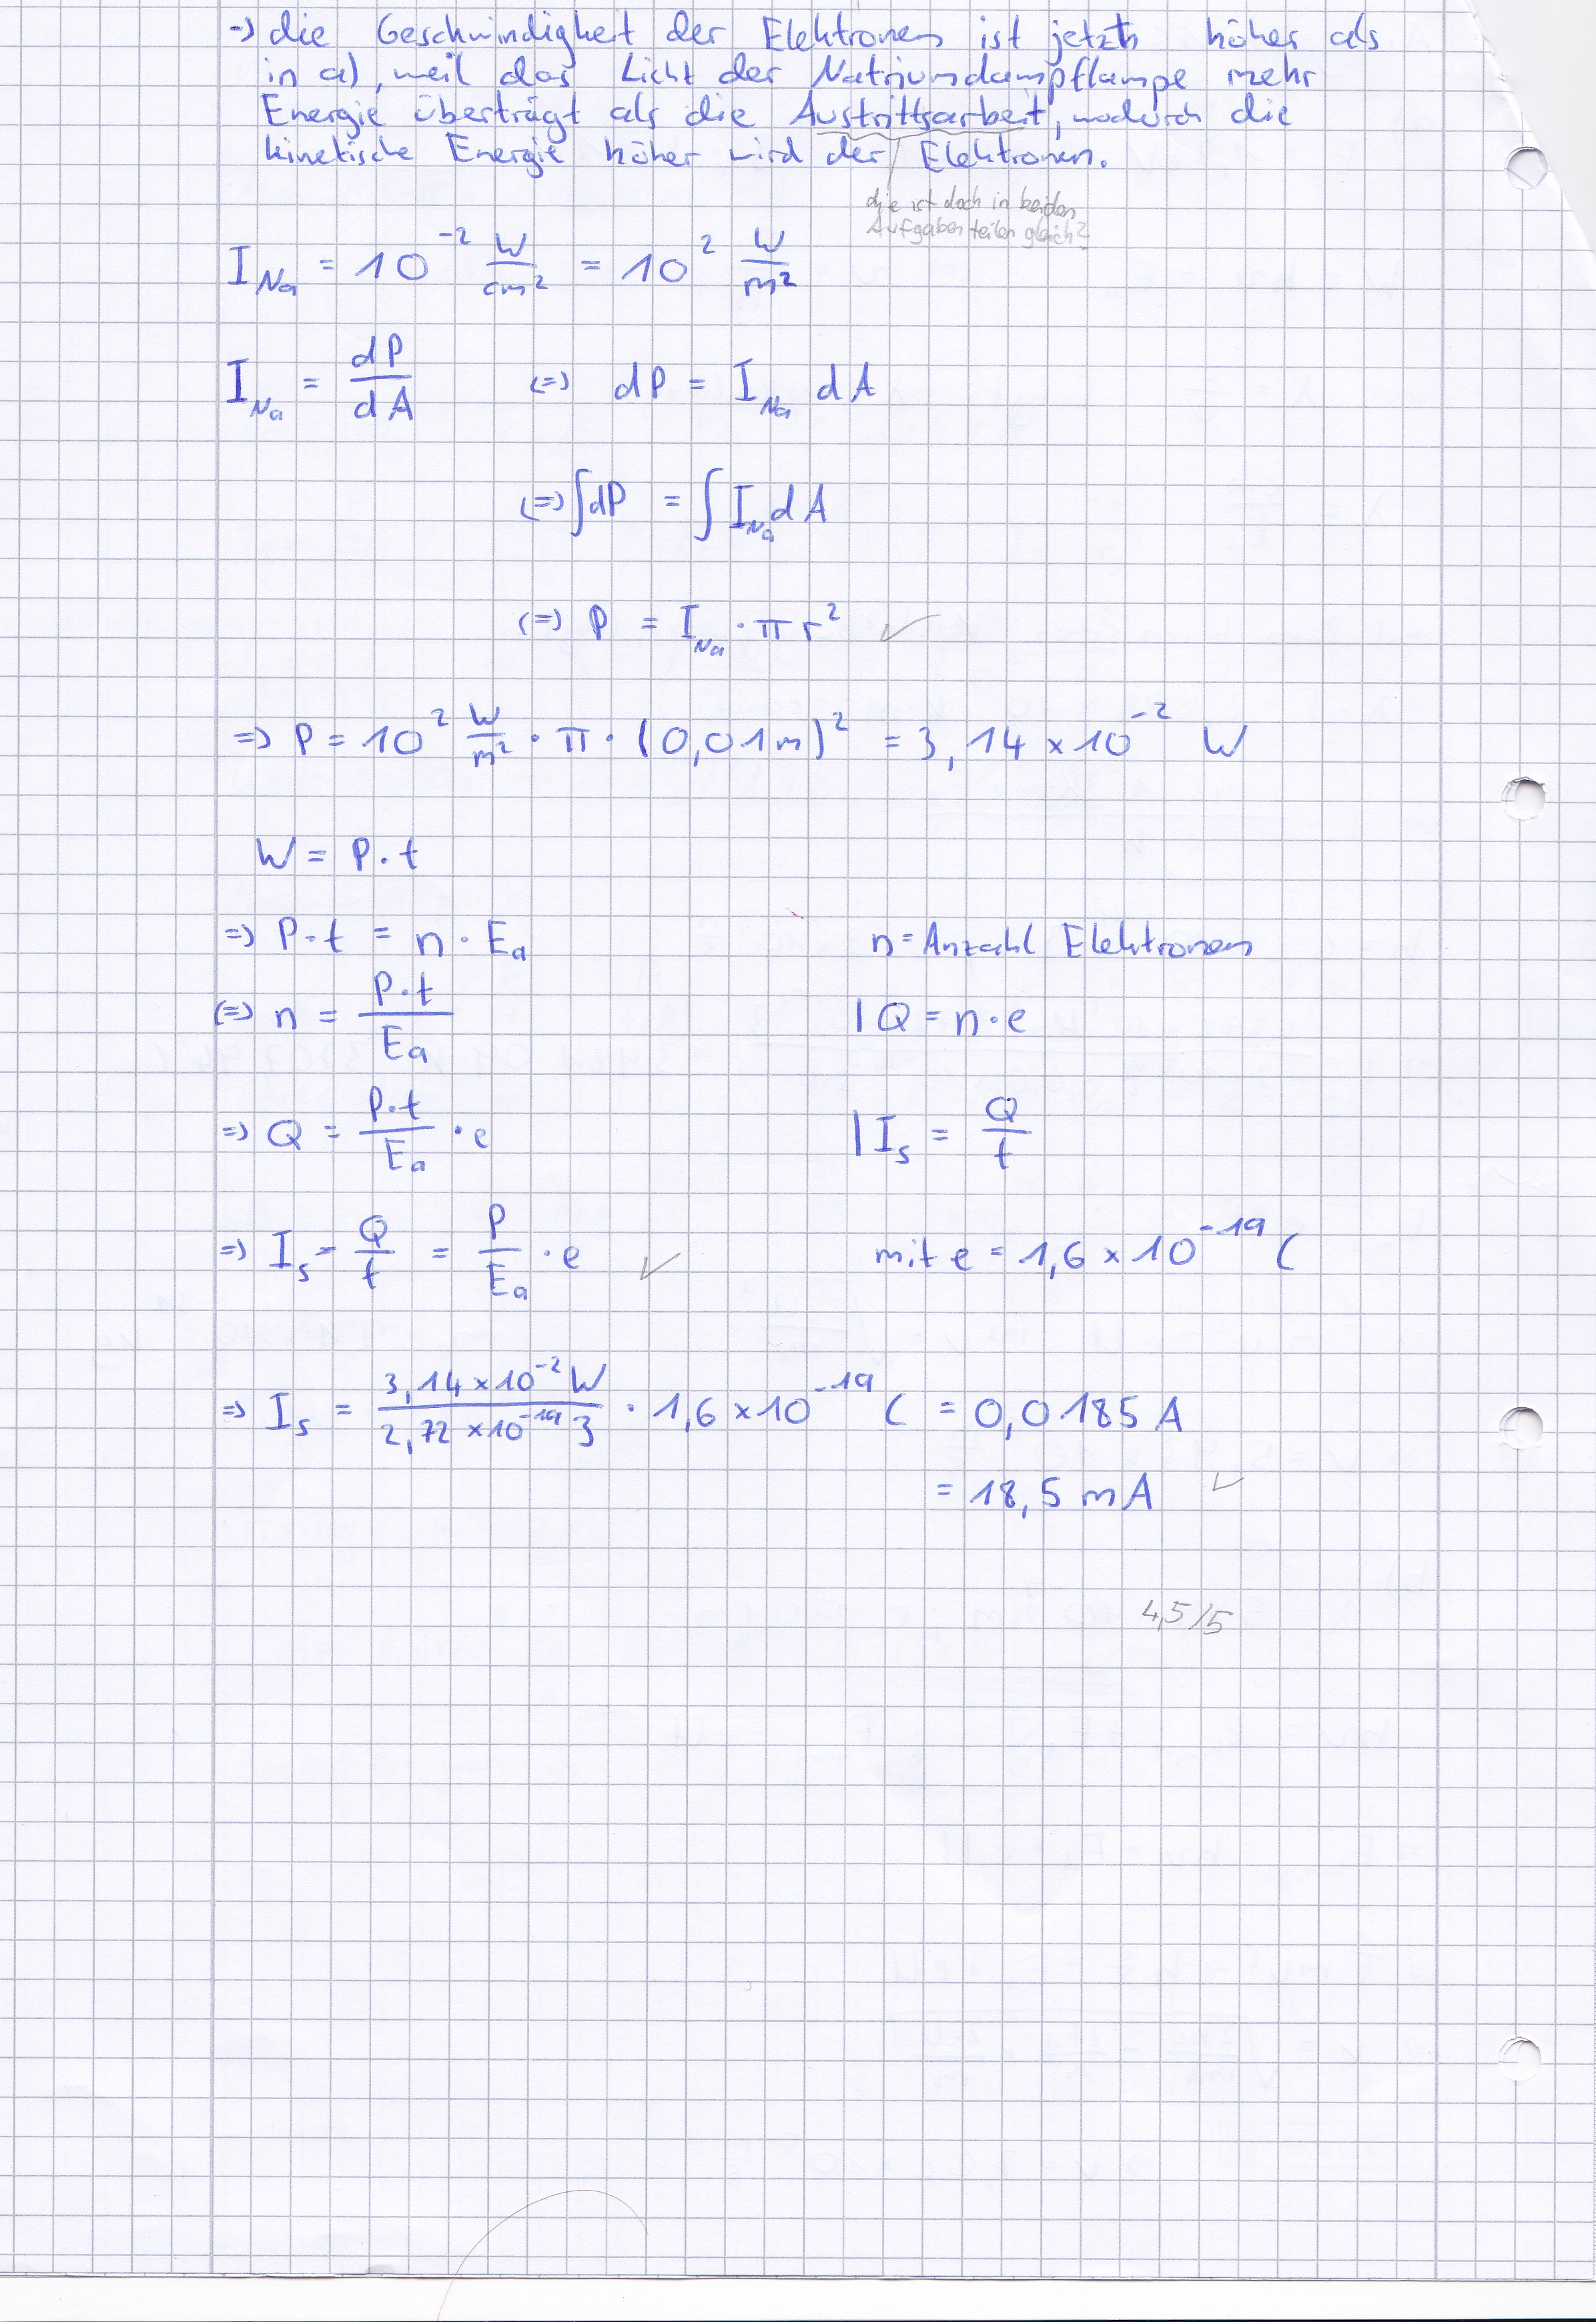 -> die Geschwindigkeit der Elektronen ist jetzt höher als
in a), weil das Licht der Natriumdampflampe mehr
Energie überträgt als die Austrittsarbeit, wodurch die
kinetische Energie höher wird der Elektronen.
die ist doch in beiden
Aufgabenteilen gleich?
I_Na = 10^-2 W/cm^2 = 10^2 W/m^2
I_Na = dP/dA (=) dP = I_Na dA
(=) ∫dP = ∫I_Na dA
(=) P = I_Na · π r^2 ✓
=> P = 10^2 W/m^2 · π · (0,01m)^2 = 3,14 × 10^-2 W
W = P · t
=> P · t = n · E_a n = Anzahl Elektronen
(=) n = P·t/E_a | Q = n · e
=> Q = P·t/E_a · e | I_s = Q/t
=> I_s = Q/t = P/E_a · e ✓ mit e = 1,6 × 10^-19 C
=> I_s = 3,14 × 10^-2 W / 2,72 × 10^-19 J · 1,6 × 10^-19 C = 0,0185 A
= 18,5 mA ✓
4,5/5